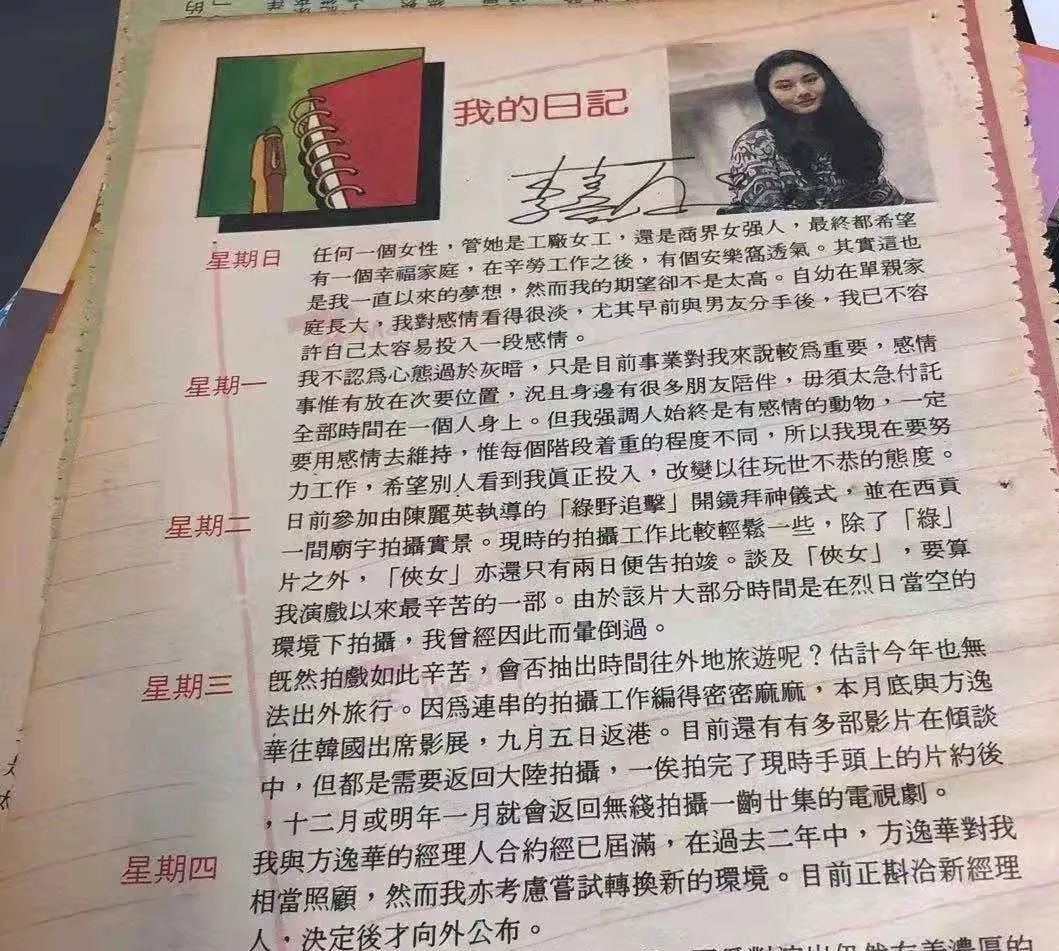 我的日記
星期日
任何一個女性，管她是工廠女工，還是商界女强人，最終都希望
有一個幸福家庭，在辛勞工作之後，有個安樂窩透氣。其實這也
是我一直以來的夢想，然而我的期望卻不是太高。自幼在單親家
庭長大，我對感情看得很淡，尤其早前與男友分手後，我已不容
許自己太容易投入一段感情。
星期一
我不認爲心態過於灰暗，只是目前事業對我來說較爲重要，感情
事惟有放在次要位置，況且身邊有很多朋友陪伴，毋須太急付託
全部時間在一個人身上。但我强調人始終是有感情的動物，一定
要用感情去維持，惟每個階段着重的程度不同，所以我現在要努
力工作，希望別人看到我眞正投入，改變以往玩世不恭的態度。
星期二
日前參加由陳麗英執導的「綠野追擊」開鏡拜神儀式，並在西貢
一間廟宇拍攝實景。現時的拍攝工作比較輕鬆一些，除了「綠」
片之外，「俠女」亦還只有兩日便告拍竣。談及「俠女」，要算
我演戲以來最辛苦的一部。由於該片大部分時間是在烈日當空的
環境下拍攝，我曾經因此而暈倒過。
星期三
旣然拍戲如此辛苦，會否抽出時間往外地旅遊呢？估計今年也無
法出外旅行。因爲連串的拍攝工作編得密密麻麻，本月底與方逸
華往韓國出席影展，九月五日返港。目前還有有多部影片在傾談
中，但都是需要返回大陸拍攝，一俟拍完了現時手頭上的片約後
，十二月或明年一月就會返回無綫拍攝一齣廿集的電視劇。
星期四
我與方逸華的經理人合約經已屆滿，在過去二年中，方逸華對我
相當照顧，然而我亦考慮嘗試轉換新的環境。目前正斟洽新經理
人，決定後才向外公布。